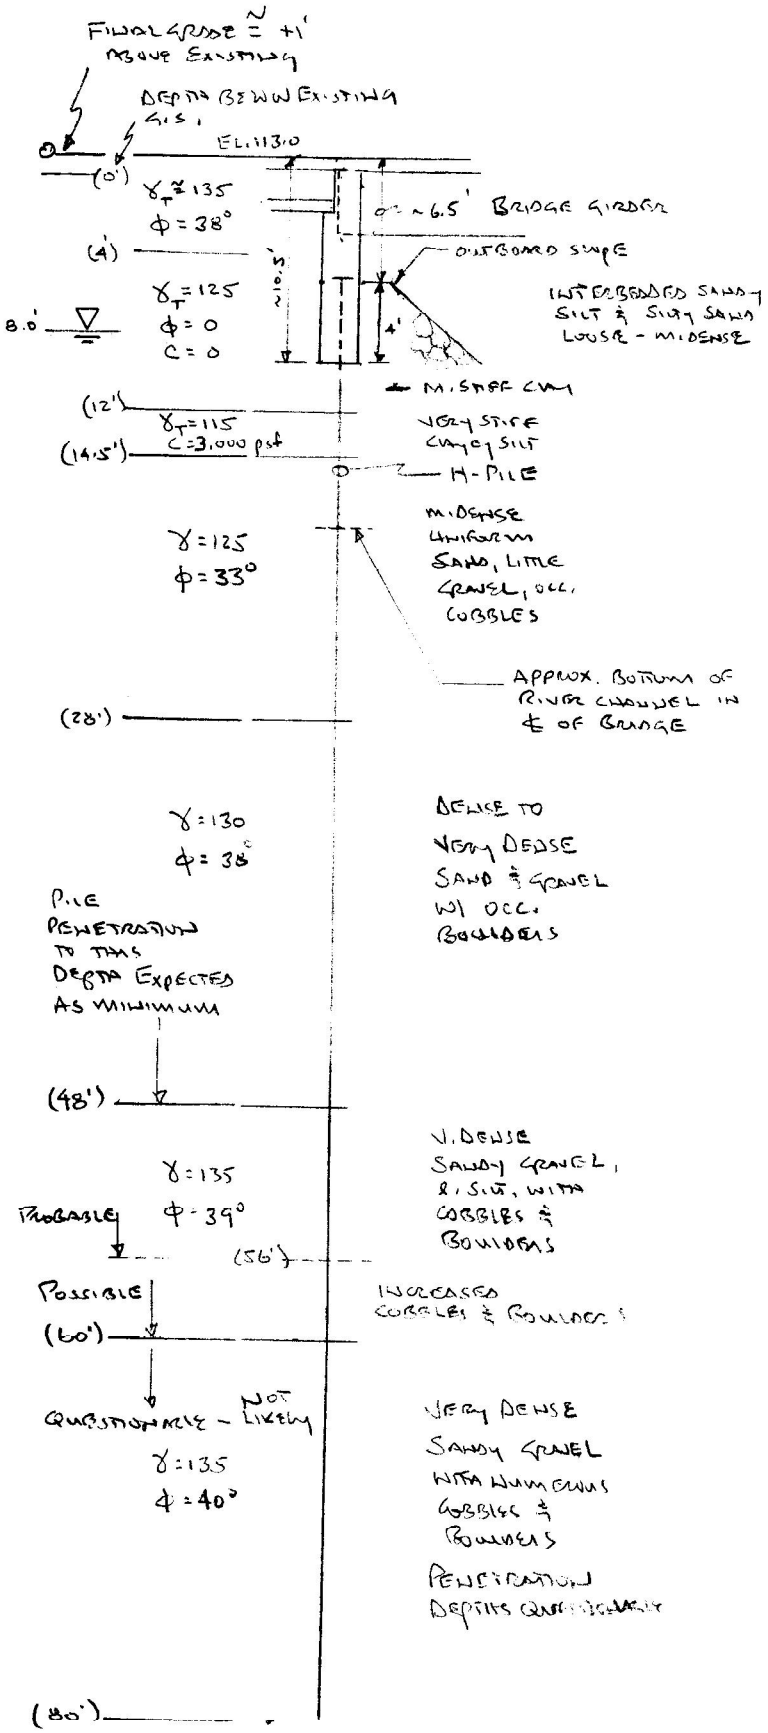 FINAL GRADE ≅ +1'
ABOVE EXISTING
DEPTH BELOW EXISTING
G.S.
EL. 113.0
(0')
γT ≅ 135
φ = 38°
~6.5' BRIDGE GIRDER
(4')
OUTBOARD SLOPE
~10.5'
γT = 125
φ = 0
C = 0
8.0'
4'
INTERBEDDED SANDY
SILT & SILTY SAND
LOOSE - M.DENSE
M. STIFF CLAY
(12')
γT = 115
C = 3,000 psf
VERY STIFF
CLAYEY SILT
(14.5')
H-PILE
γ = 125
φ = 33°
M.DENSE
UNIFORM
SAND, LITTLE
GRAVEL, OCC.
COBBLES
APPROX. BOTTOM OF
RIVER CHANNEL IN
℄ OF BRIDGE
(28')
γ = 130
φ = 38°
DENSE TO
VERY DENSE
SAND & GRAVEL
W/ OCC.
BOULDERS
PILE
PENETRATION
TO THIS
DEPTH EXPECTED
AS MINIMUM
(48')
γ = 135
φ - 39°
V.DENSE
SANDY GRAVEL,
SILT, WITH
COBBLES &
BOULDERS
PROBABLE
(56')
POSSIBLE
INCREASED
COBBLES & BOULDERS
(60')
QUESTIONABLE - NOT
LIKELY
γ = 135
φ = 40°
VERY DENSE
SANDY GRAVEL
WITH NUMEROUS
COBBLES &
BOULDERS
PENETRATION
DEPTHS QUESTIONABLE
(80')